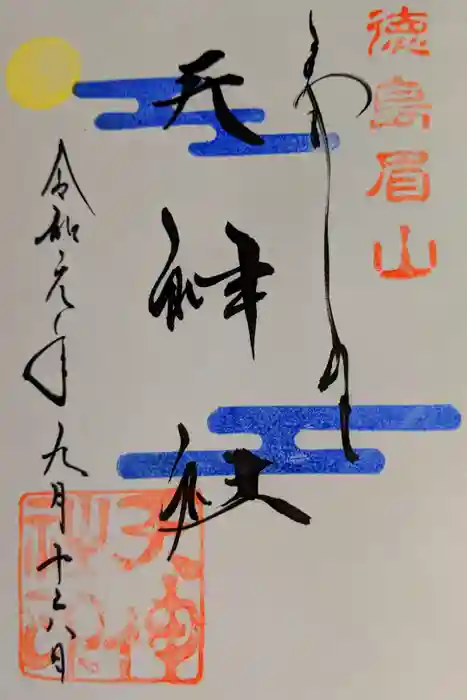 徳島眉山
天神社
令和元年九月十六日
天神社印